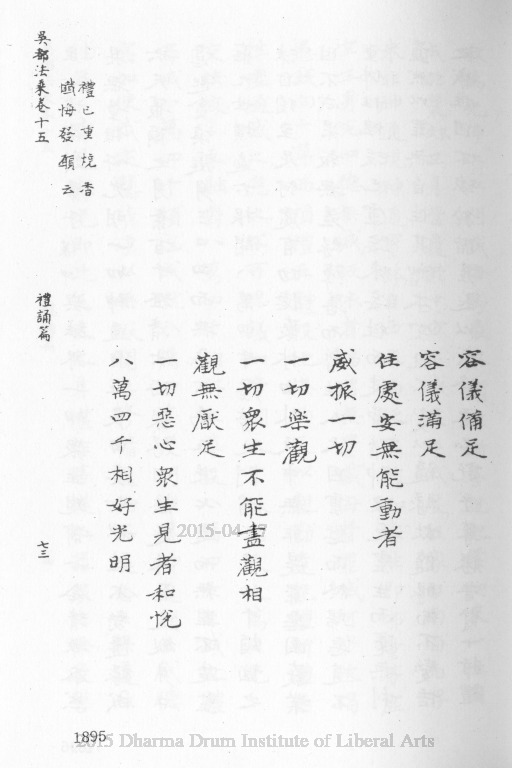 容儀備足
容儀滿足
住處安無能動者
威振一切
一切樂觀
一切衆生不能盡觀相
觀無厭足
一切惡心衆生見者和悅
八萬四千相好光明
禮已重燒香
懺悔發願云
吳都法乘卷十五
禮誦篇
七三
1895
2015-04-17
2015 Dharma Drum Institute of Liberal Arts